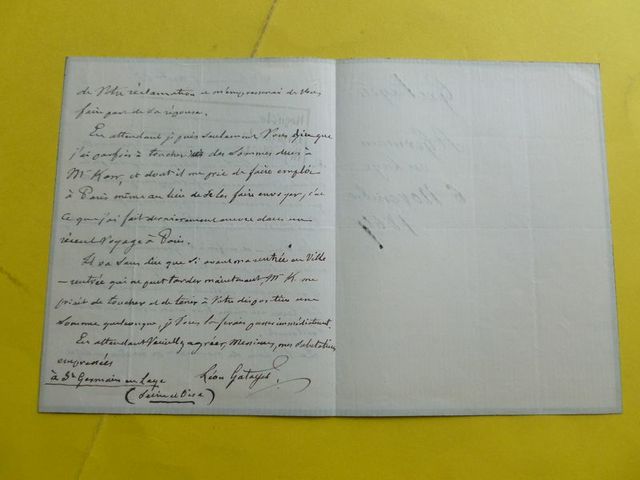 de Votre réclamation et m'empresserai de Vous
faire part de sa réponse.
En attendant je puis seulement Vous dire que
j'ai parfois à toucher des sommes dues à
Mr Karr, et dont il me prie de faire emploi
à Paris même au lieu de les faire envoyer, c'est
ce que j'ai fait dernièrement encore dans un
récent Voyage à Paris.
Il va sans dire que si avant ma rentrée en Ville
– rentrée qui ne peut tarder maintenant Mr K. me
priait de toucher et de tenir à Votre disposition une
somme quelconque, je Vous la ferais passer immédiatement.
En attendant Veuillez agréer, Messieurs, mes salutations
empressées
à St Germain en Laye
Léon Gatayes
(Seine et Oise)